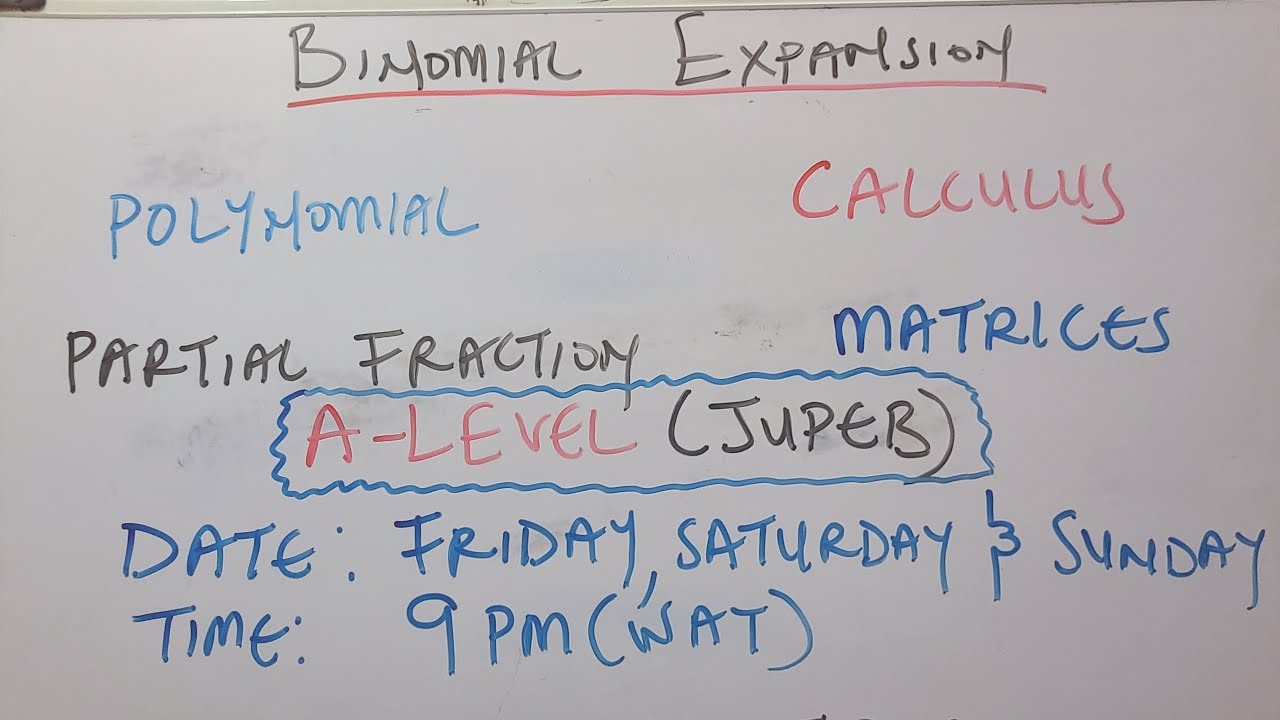 BINOMIAL EXPANSION
POLYNOMIAL
CALCULUS
PARTIAL FRACTION
MATRICES
A-LEVEL (JUPEB)
DATE: FRIDAY, SATURDAY & SUNDAY
TIME: 9 PM (WAT)